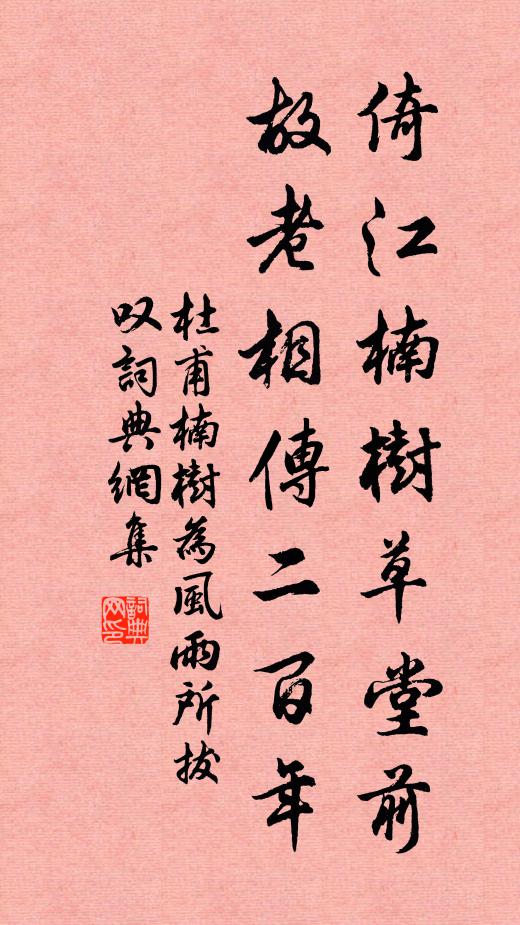 倚江楠樹草堂前
故老相傳二百年
杜甫楠樹為風雨所拔
叹詞典網集
詞典
网印